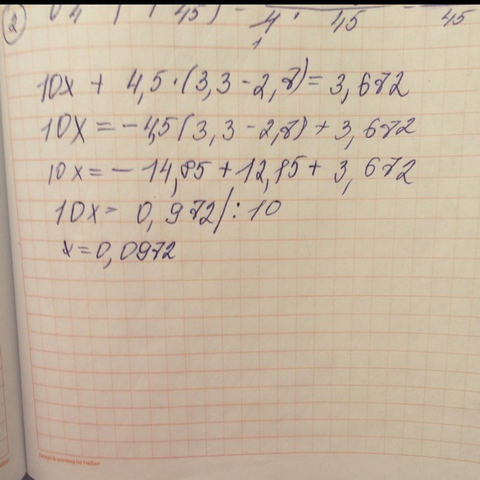 2
4 · 45 45
1
10x + 4,5·(3,3-2,7)= 3,672
10x=-4,5(3,3-2,7)+3,672
10x=-14,85+12,15+3,672
10x= 0,972/:10
x=0,0972